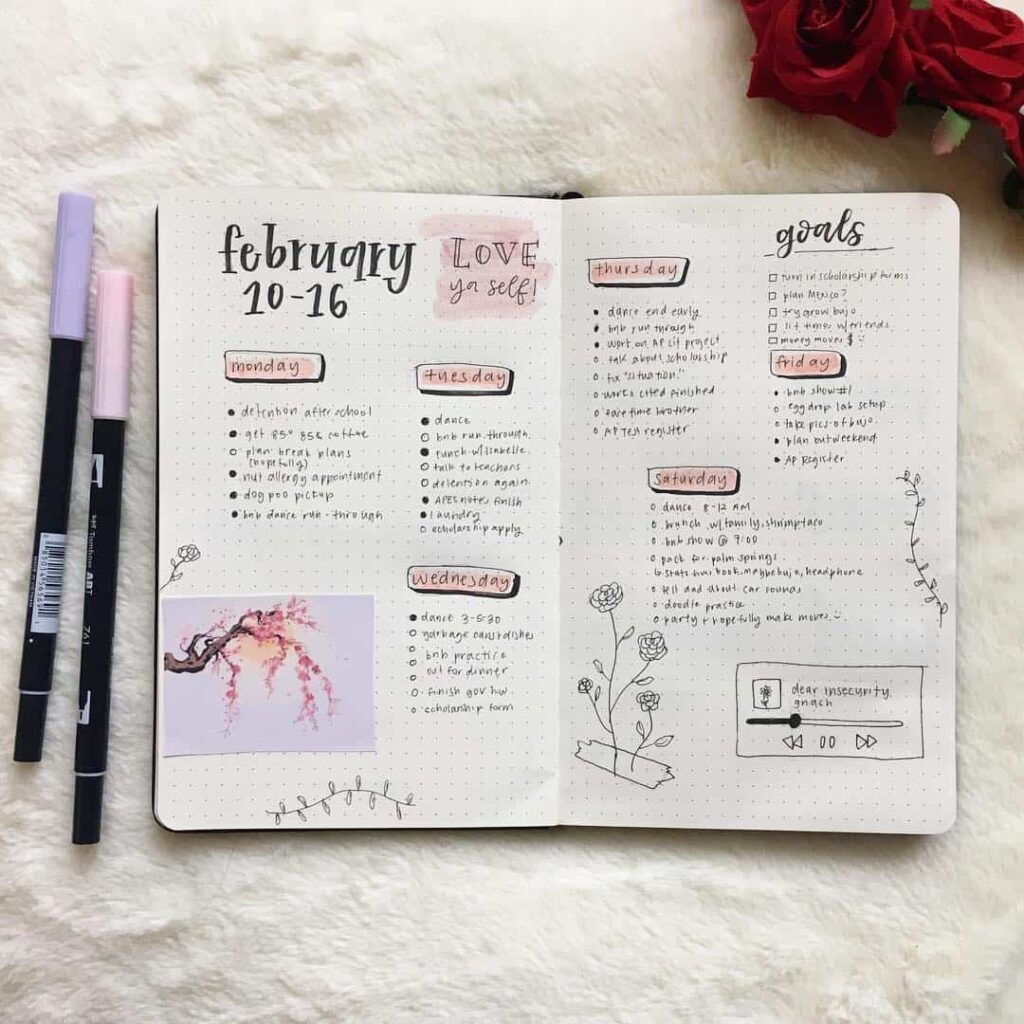 february
10-16
LOVE
ya self!
monday
detention after school
get 85° 85¢ coffee
plan break plans
(hopefully)
nut allergy appointment
dog poo pickup
bnb dance run-through
tuesday
dance
bnb run through
lunch w/isabelle
talk to teachers
detention again
APES notes finish
laundry
scholarship apply
wednesday
dance 3-5:30
garbage cans+dishes
bnb practice
out for dinner
finish gov hw
scholarship form
thursday
dance end early
bnb run through
work on AP lit project
talk about scholarship
fix "situation"
works cited finished
take time brother
AP Test register
goals
turn in scholarship forms
plan Mexico?
try grow bujo
lit times w/friends
money moves $ :)
friday
bnb show #1
egg drop lab setup
take pics of bujo
plan out weekend
AP Register
saturday
dance 8-12 AM
brunch w/family, shrimp taco
bnb show @ 7:00
pack for palm springs
book, maybe bujo, headphone
tell dad about car sounds
doodle practice
party + hopefully make moves :)
dear insecurity,
gnash
Tombow ABT
761